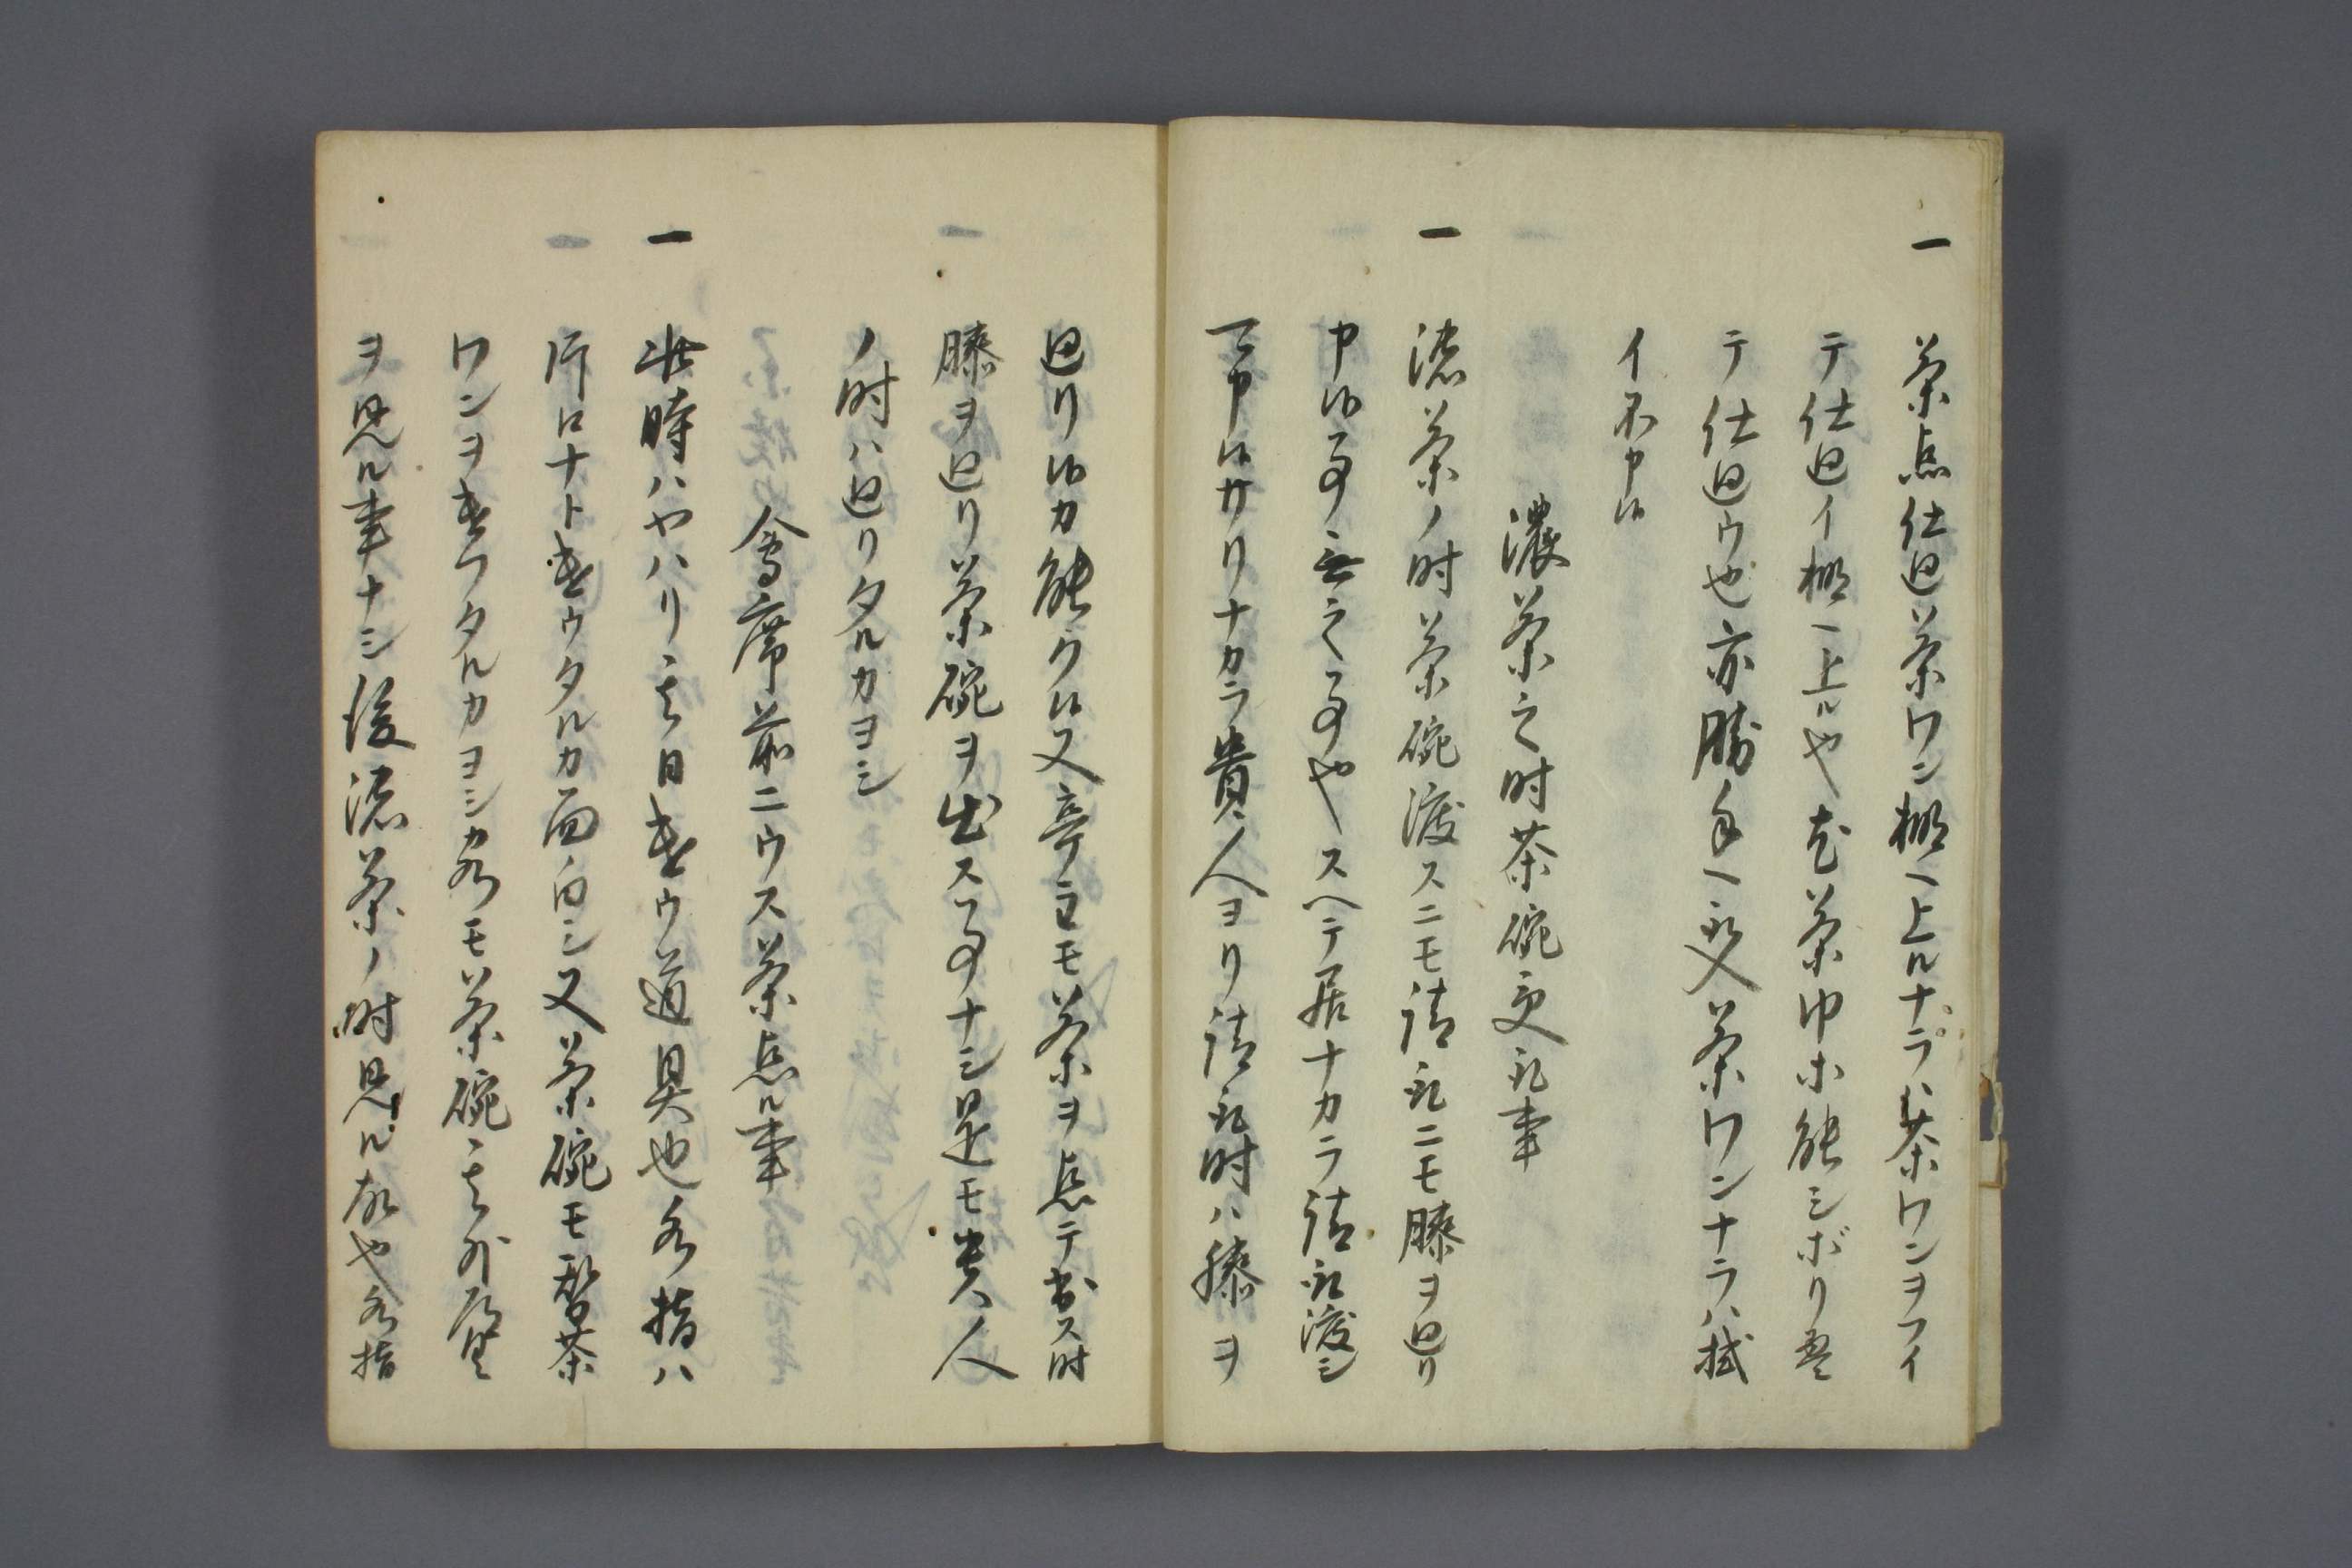 一 茶点仕廻茶ワン棚ヘ上ルナラハ茶ワンヲフイ
テ仕廻イ棚ヘ上ルヤ尤茶巾ホ能シボリ畳
テ仕廻ウ也亦勝手ヘ取入茶ワンナラハ拭
イ不申候
濃茶之时茶碗請取事
一 濃茶ノ时茶碗渡スニモ請取ニモ膝ヲ廻リ
申候事無之事ヤスヘテ居ナカラ請取渡シ
可申候サリナカラ貴人ヨリ請取时ハ膝ヲ
廻リ候カ能ク候又亭主モ茶ヲ点テ出ス时
膝ヲ廻リ茶碗ヲ出ス事ナシ是モ貴人
ノ时ハ廻リタルカヨシ
會席前ニウス茶点ル事
一 此時ハヤハリ其日遣ウ道具也水指ハ
片口ナト遣ウタルカ面白シ又茶碗モ替茶
ワンヲ遣フタルカヨシ客モ茶碗其外
ヲ見ル事ナシ後濃茶ノ时見ル故ヤ水指